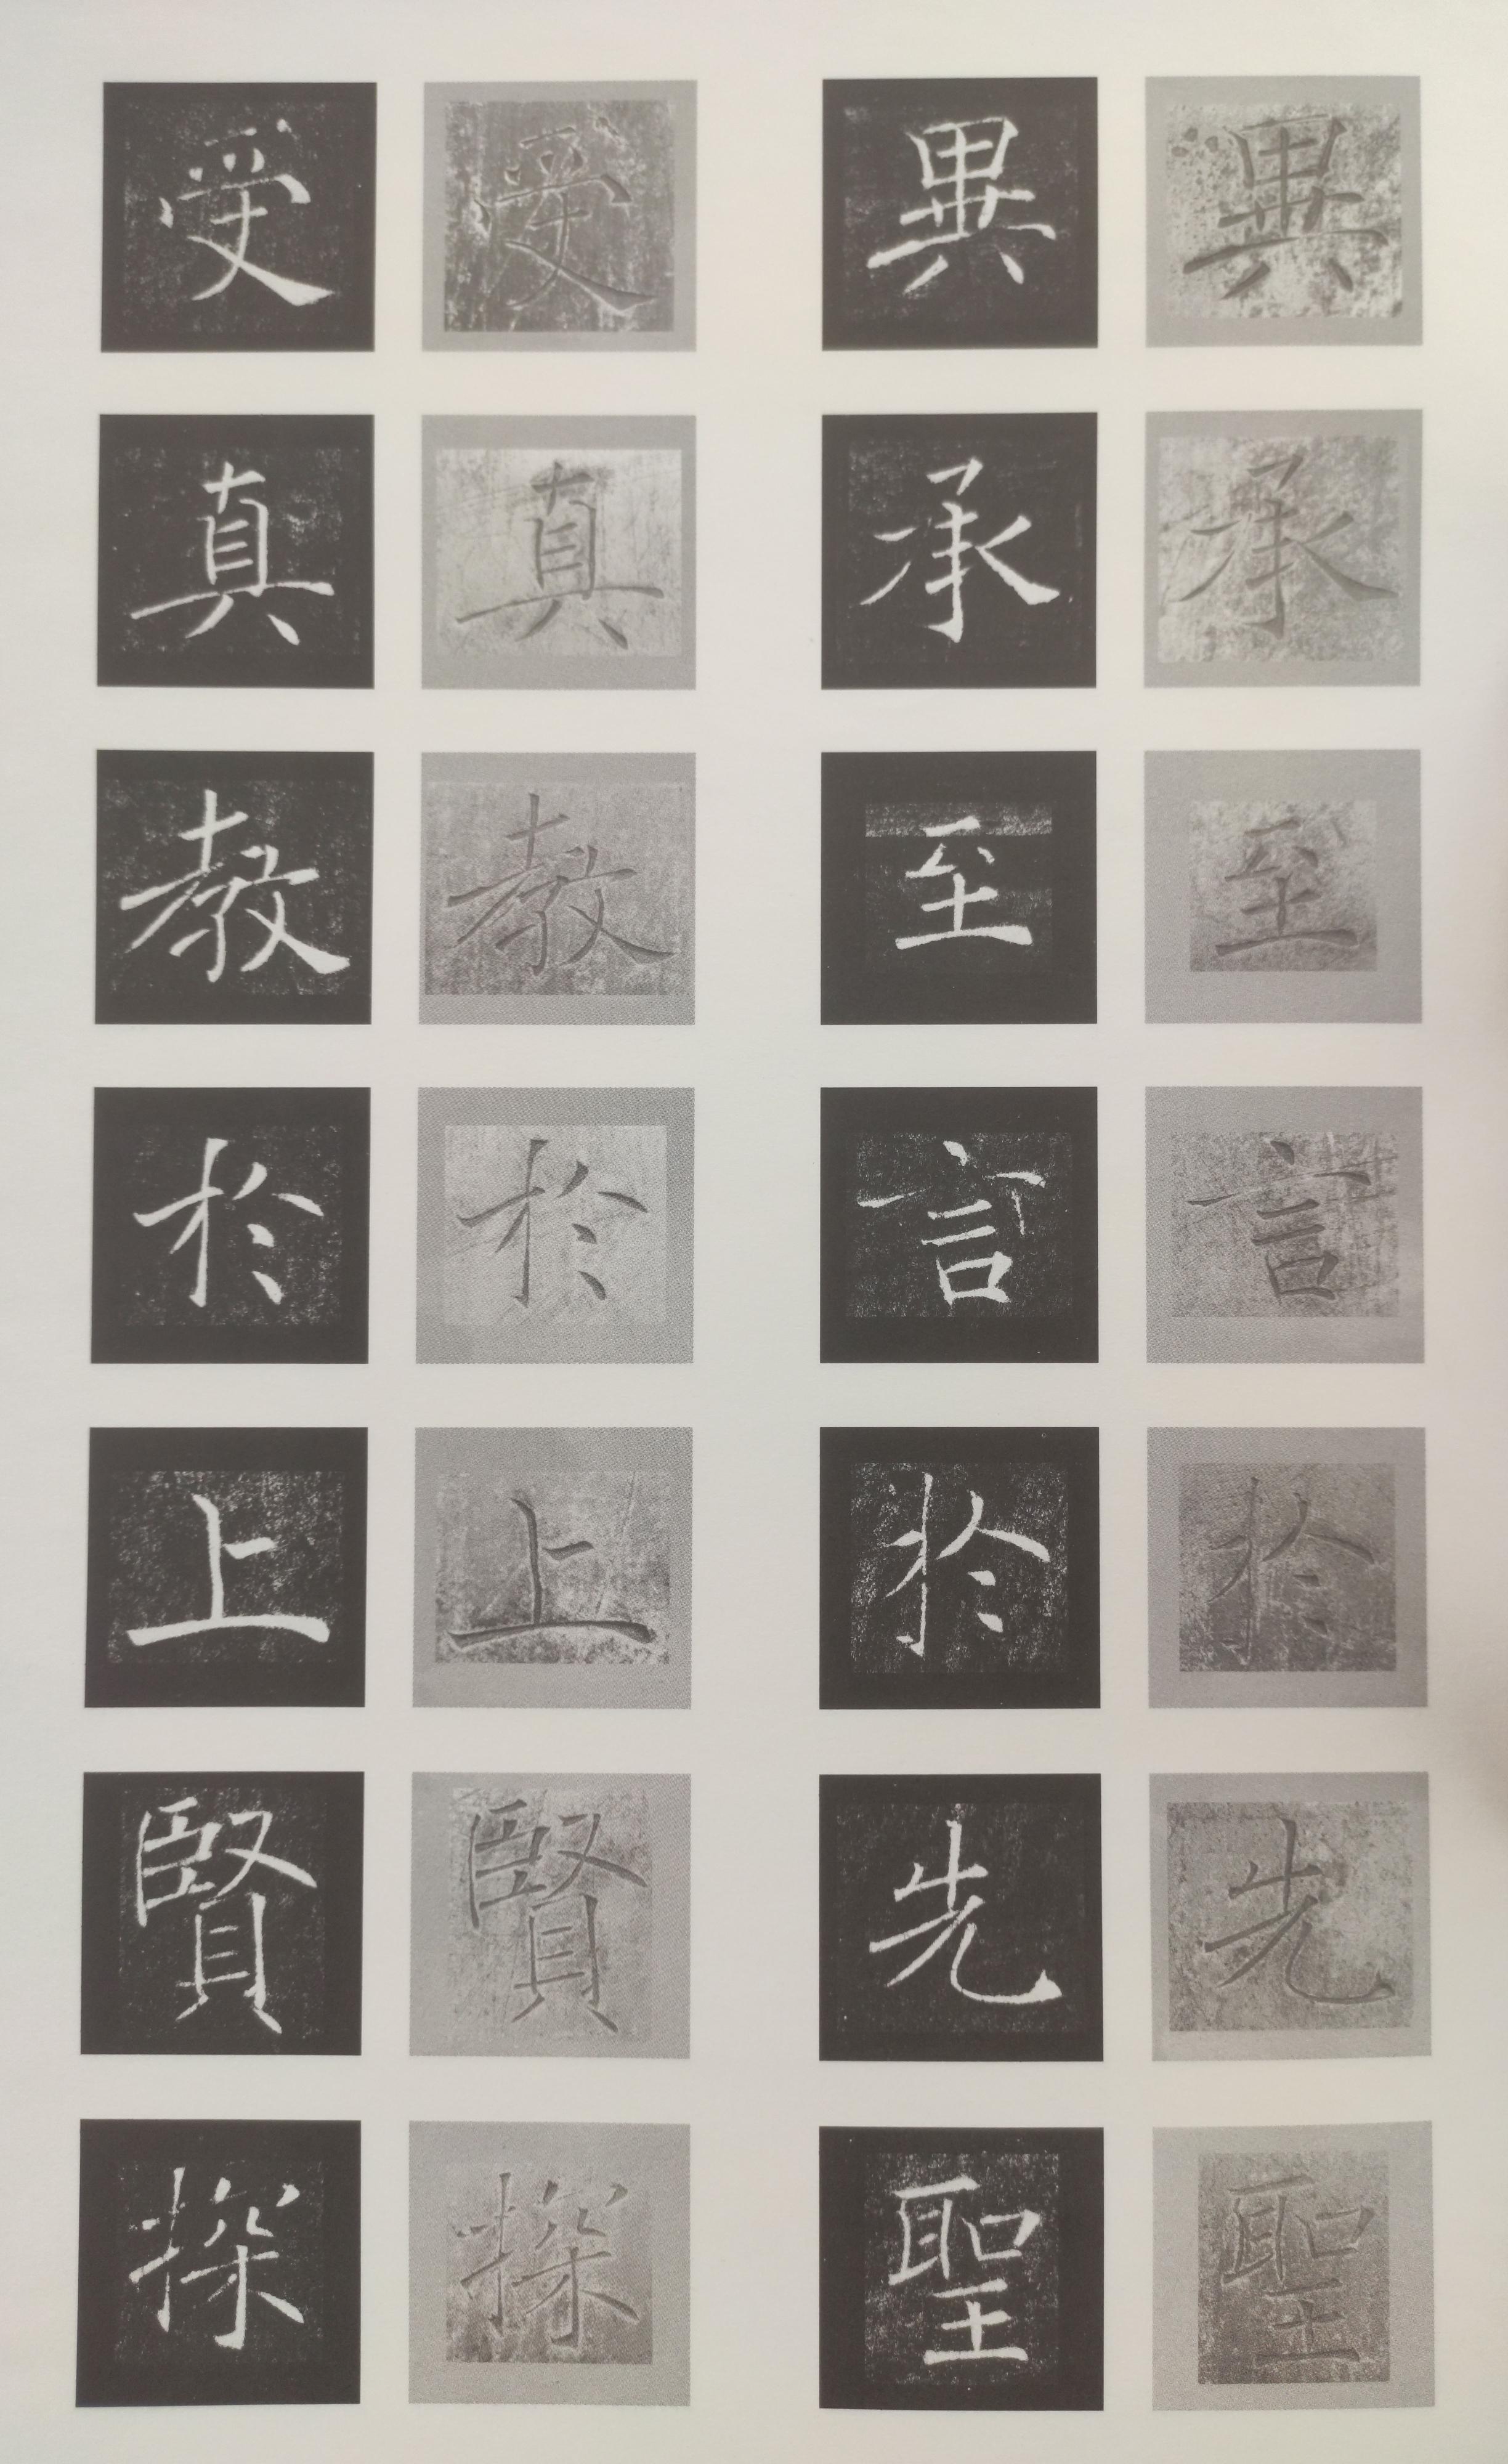 異承至言於先聖
異承至言於先聖
受真教於上賢探
受真教於上賢探